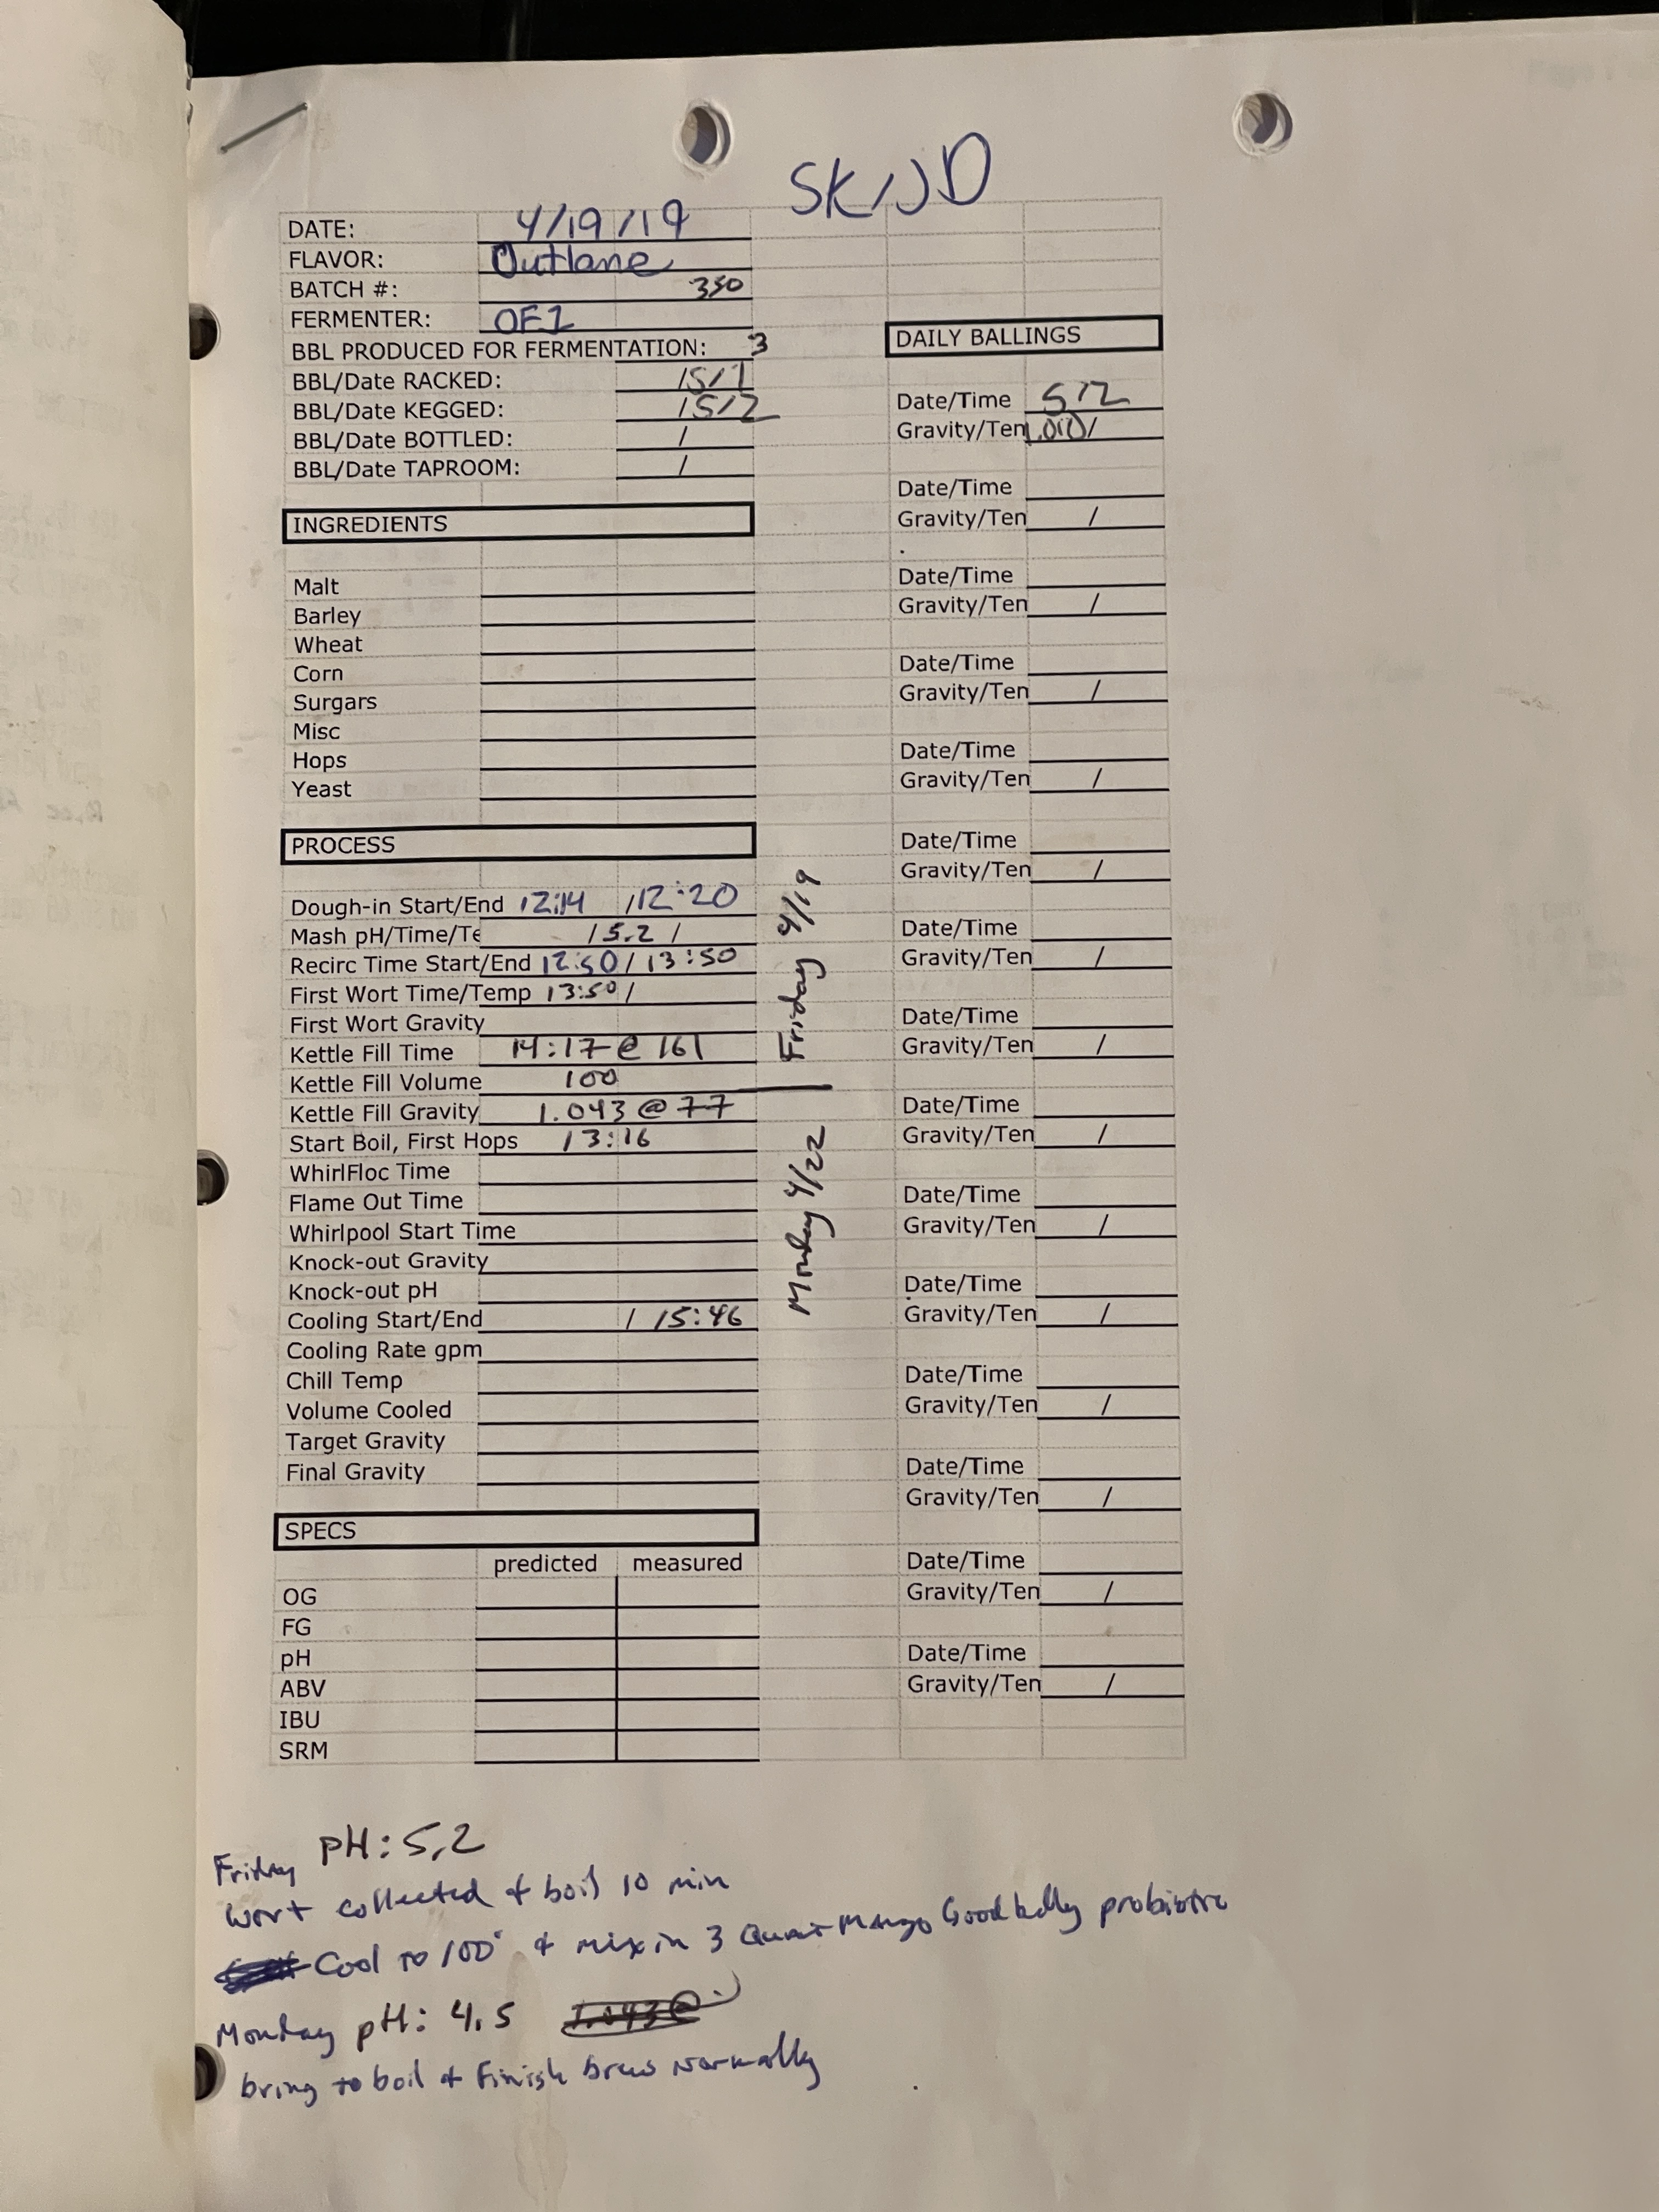 SK/JD
DATE: 4/19/19
FLAVOR: Outlane
BATCH #: 350
FERMENTER: OF1
BBL PRODUCED FOR FERMENTATION: 3
BBL/Date RACKED: /5/1
BBL/Date KEGGED: /5/2
BBL/Date BOTTLED: /
BBL/Date TAPROOM: /
INGREDIENTS
Malt
Barley
Wheat
Corn
Surgars
Misc
Hops
Yeast
PROCESS
Dough-in Start/End 12:14 /12:20
Mash pH/Time/Te /5.2 /
Recirc Time Start/End 12:50/13:50
First Wort Time/Temp 13:50/
First Wort Gravity
Kettle Fill Time 14:17 @ 161
Kettle Fill Volume 100
Kettle Fill Gravity 1.043 @ 77
Start Boil, First Hops 13:16
WhirlFloc Time
Flame Out Time
Whirlpool Start Time
Knock-out Gravity
Knock-out pH
Cooling Start/End / 15:46
Cooling Rate gpm
Chill Temp
Volume Cooled
Target Gravity
Final Gravity
SPECS
predicted measured
OG
FG
pH
ABV
IBU
SRM
Friday 4/19
Monday 4/22
DAILY BALLINGS
Date/Time 5/2
Gravity/Ten 1.010/
Date/Time
Gravity/Ten /
Date/Time
Gravity/Ten /
Date/Time
Gravity/Ten /
Date/Time
Gravity/Ten /
Date/Time
Gravity/Ten /
Date/Time
Gravity/Ten /
Date/Time
Gravity/Ten /
Date/Time
Gravity/Ten /
Date/Time
Gravity/Ten /
Date/Time
Gravity/Ten /
Date/Time
Gravity/Ten /
Date/Time
Gravity/Ten /
Date/Time
Gravity/Ten /
Date/Time
Gravity/Ten /
Friday pH: 5.2
Wort collected & boil 10 min
Cool to 100° & mix in 3 Quart Mango Goodbelly probiotic
Monday pH: 4.5 1.043@
bring to boil & Finish brew normally